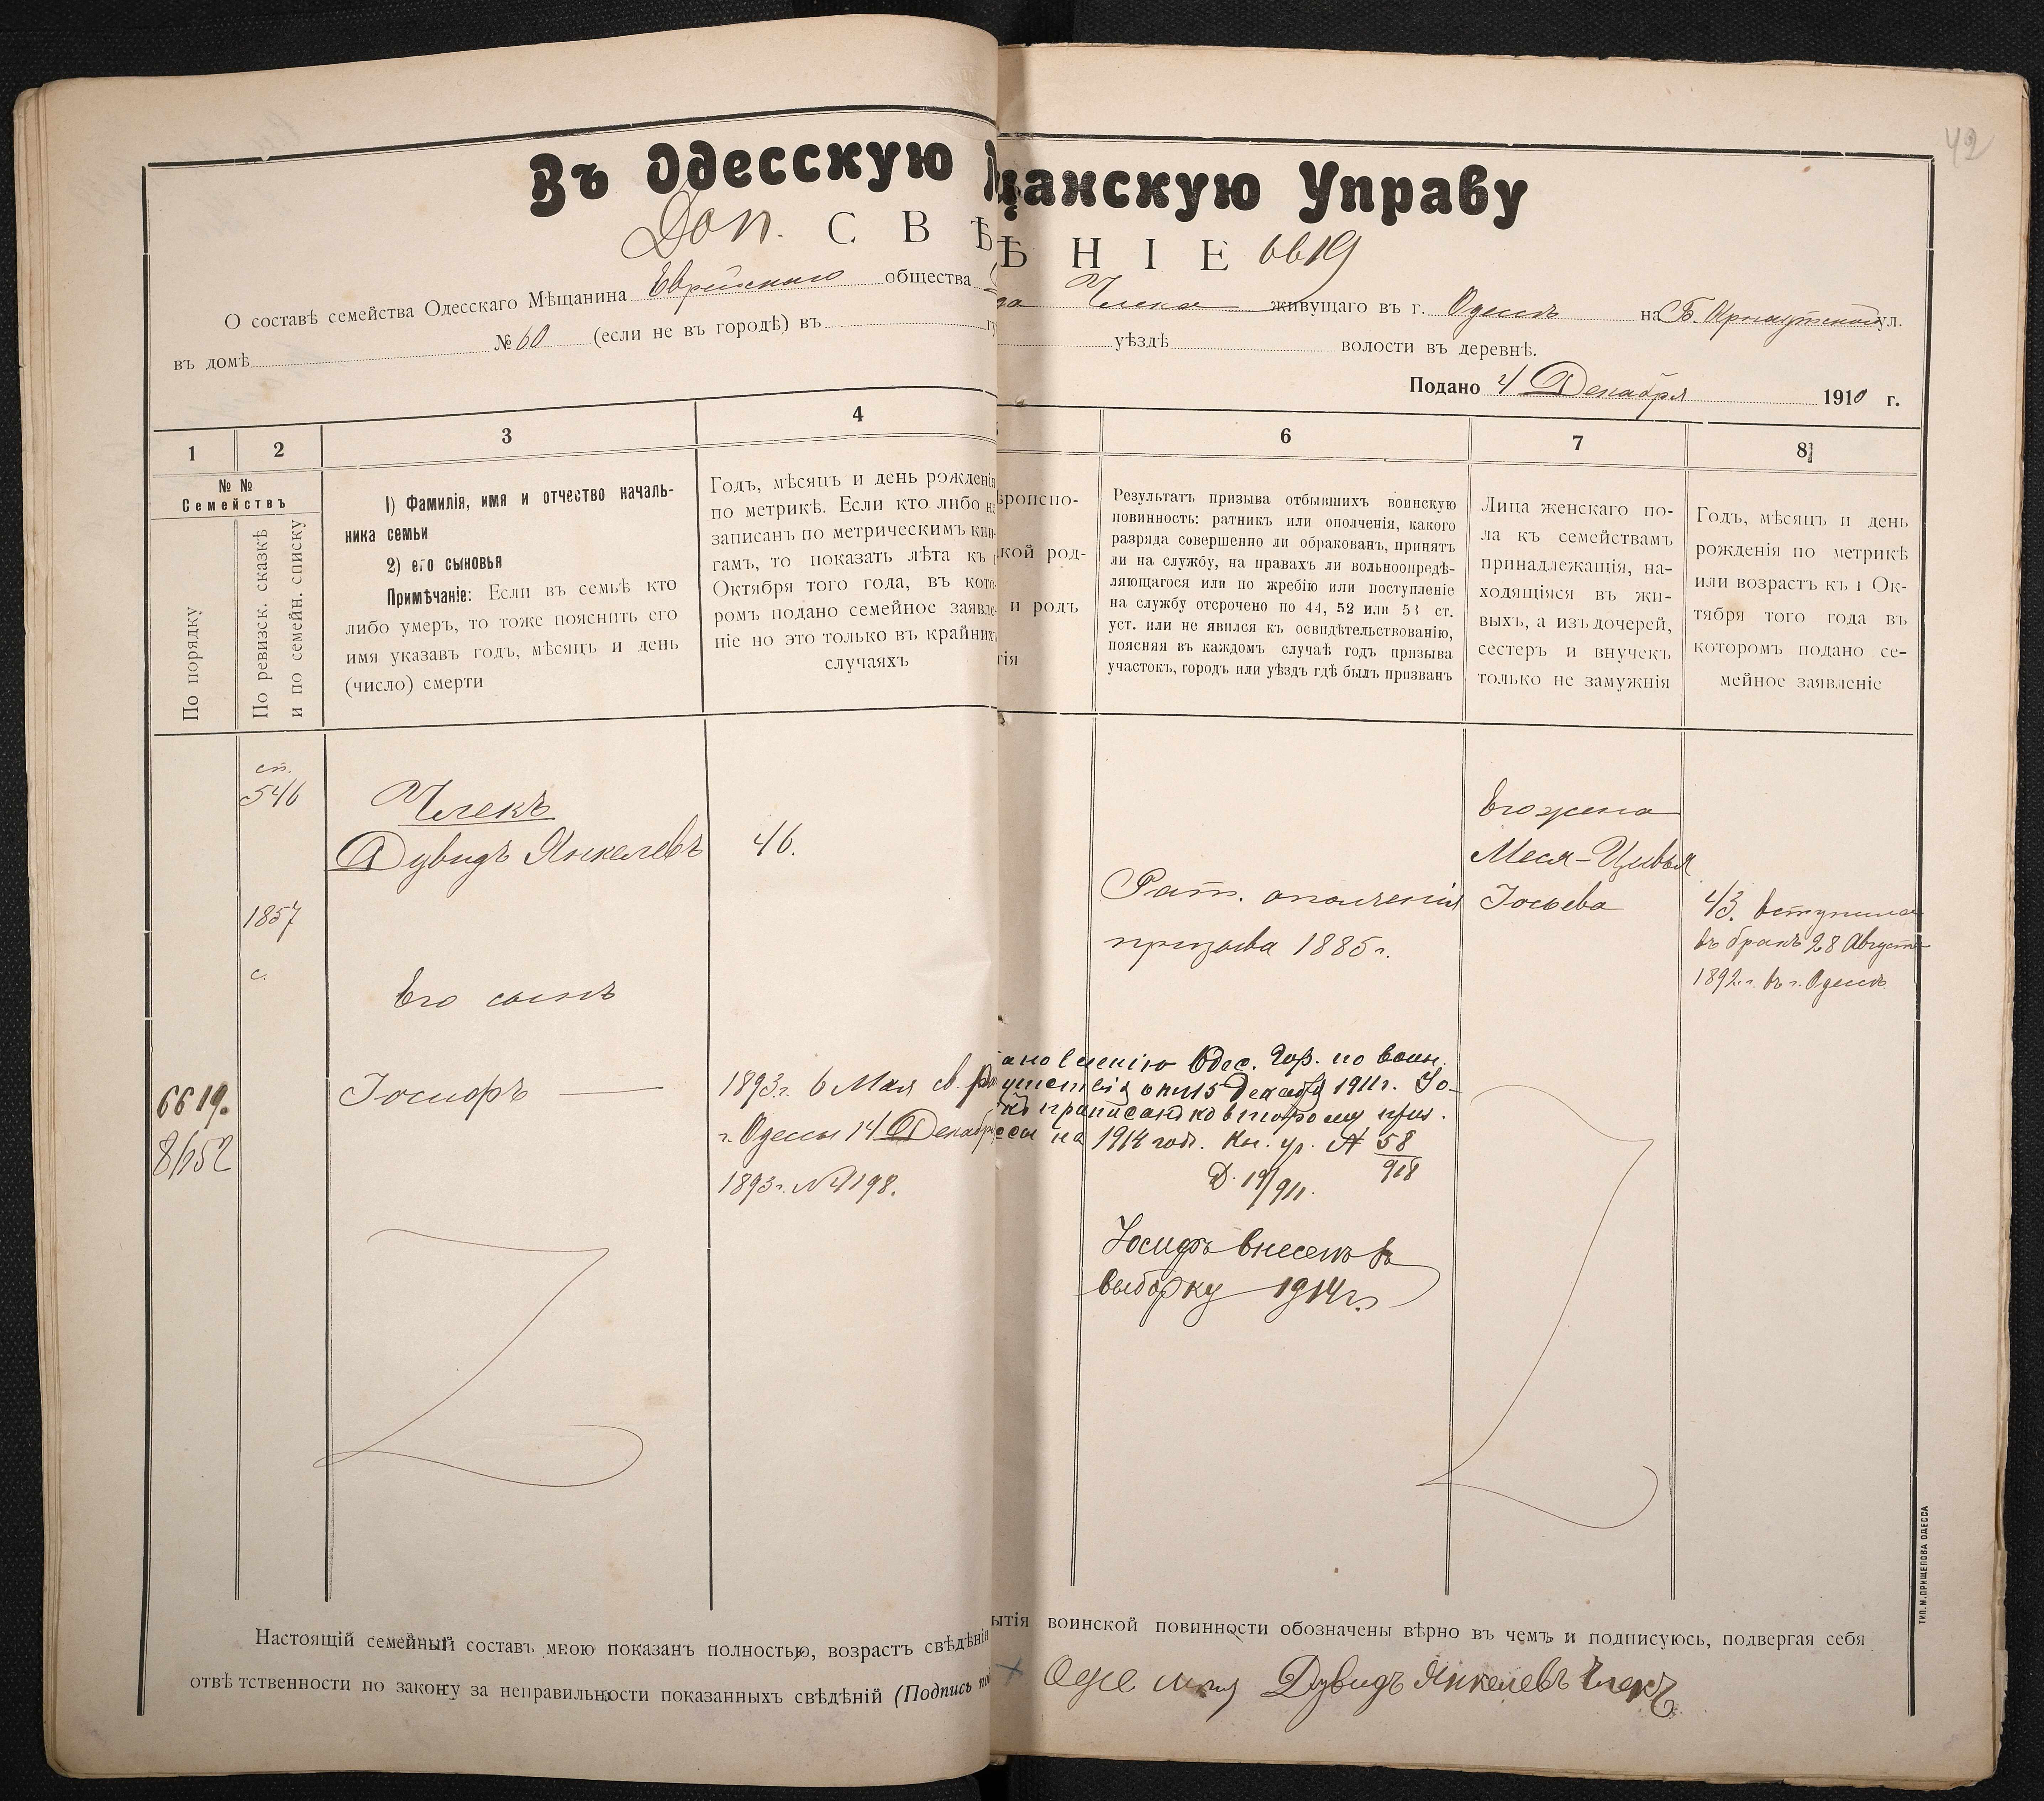 42
Въ Одесскую щанскую Управу
Доп. СВѢ ѢНІЕ 6619
О составѣ семейства Одесскаго Мѣщанина Еврейскаго общества Члека живущаго въ г. Одессѣ на Б. Арнаутской ул.
въ домѣ № 60 (если не въ городѣ) въ уѣздѣ волости въ деревнѣ.
Подано 4 Декабря 1910 г.
1 2 3 4 6 7 8
№ №
Семействъ
По порядку
По ревизск. сказкѣ
и по семейн. списку
1) Фамилія, имя и отчество началь-
ника семьи
2) его сыновья
Примѣчаніе: Если въ семьѣ кто
либо умеръ, то тоже пояснить его
имя указавъ годъ, мѣсяцъ и день
(число) смерти
Годъ, мѣсяцъ и день рожденія
по метрикѣ. Если кто либо не
записанъ по метрическимъ кни-
гамъ, то показать лѣта къ 1
Октября того года, въ кото-
ромъ подано семейное заявле-
ніе но это только въ крайнихъ
случаяхъ
ѣроиспо-
кой род-
и родъ
гія
Результатъ призыва отбывшихъ воинскую
повинность: ратникъ или ополченія, какого
разряда совершенно ли обракованъ, принятъ
ли на службу, на правахъ ли вольноопредѣ-
ляющагося или по жребію или поступленіе
на службу отсрочено по 44, 52 или 53 ст.
уст. или не явился къ освидѣтельствованію,
поясняя въ каждомъ случаѣ годъ призыва
участокъ, городъ или уѣздъ гдѣ былъ призванъ
Лица женскаго по-
ла къ семействамъ
принадлежащія, на-
ходящіяся въ жи-
выхъ, а изъ дочерей,
сестеръ и внучекъ
только не замужнія
Годъ, мѣсяцъ и день
рожденія по метрикѣ
или возрастъ къ 1 Ок-
тября того года въ
которомъ подано се-
мейное заявленіе
сп.
546
Члекъ
Дувидъ Янкелевъ
46.
1857
с.
Его сынъ
6619.
8/652
Іосифъ
1893 г. 6 Мая св. Рав
г. Одессы 14 Декабря
1893 г. № 4198.
Рат. ополченія
призыва 1885 г.
ановленію Одес. Гор. по воин.
утствія отъ 15 Декабря 1911 г. Іо-
приписанъ ко второму приз.
ессы на 1914 годъ. Кн. ур. № 58
918
Д. 19/911.
Іосифъ внесенъ въ
выборку 1914 г.
Его жена
Меся-Цивья
Іосьева
43. вступила
въ бракъ 28 Августа
1892 г. въ г. Одессѣ
Настоящій семейный составъ мною показанъ полностью, возрастъ свѣдѣнія ытія воинской повинности обозначены вѣрно въ чемъ и подписуюсь, подвергая себя
отвѣтственности по закону за неправильности показанныхъ свѣдѣній (Подпись Дувидъ Янкелевъ Члекъ
ТИП. М. ПРИЩЕПОВА ОДЕССА